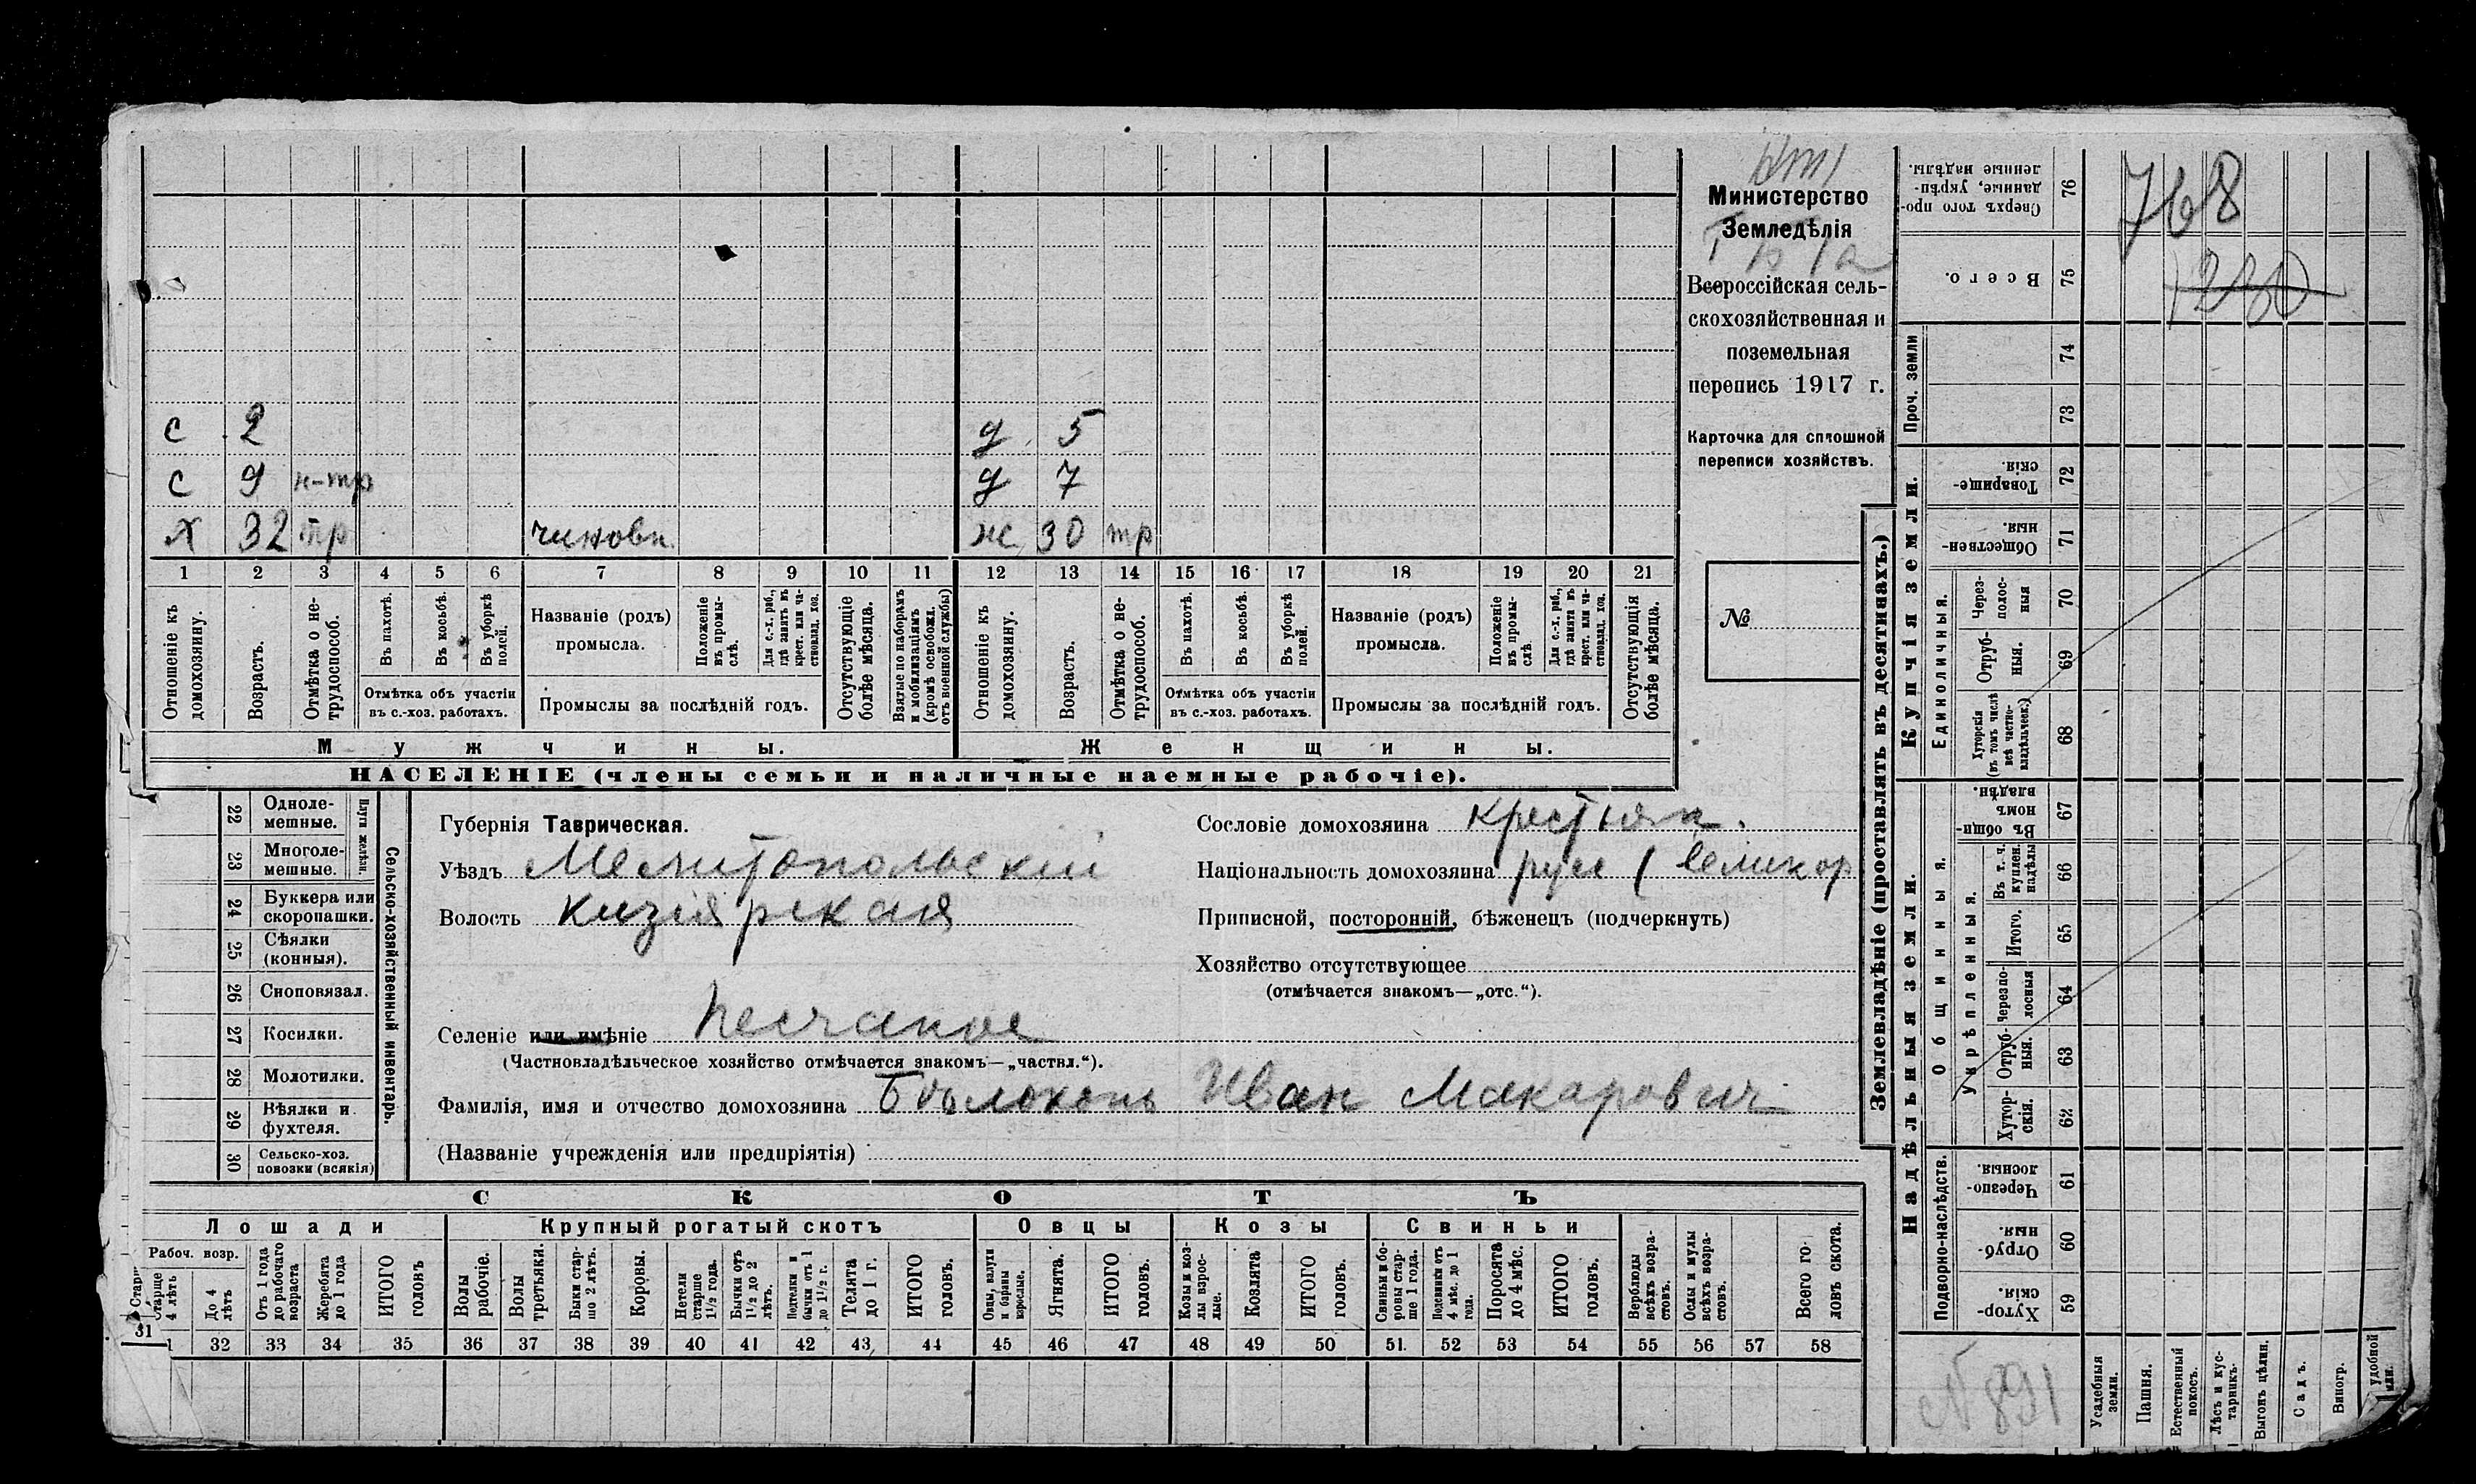 768
1230
Министерство
Земледѣлія
Всероссійская сель-
скохозяйственная и
поземельная
перепись 1917 г.
Карточка для сплошной
переписи хозяйствъ.
№
с 2 д 5
с 9 н-тр д 7
х 32 тр чиновн. ж 30 тр
1 2 3 4 5 6 7 8 9 10 11 12 13 14 15 16 17 18 19 20 21
Отношеніе къ домохозяину.
Возрастъ.
Отмѣтка о не-трудоспособ.
Въ пахотѣ.
Въ косьбѣ.
Въ уборкѣ полей.
Отмѣтка объ участіи
въ с.-хоз. работахъ.
Названіе (родъ)
промысла.
Положеніе въ промы-слѣ.
Для с.-х. раб., гдѣ занятъ въ крест. или ча-ствовлад. хоз.
Промыслы за послѣдній годъ.
Отсутствующіе болѣе мѣсяца.
Взятые по наборамъ и мобилизаціямъ (кромѣ освобожд. отъ военной службы)
Отношеніе къ домохозяину.
Возрастъ.
Отмѣтка о не-трудоспособ.
Въ пахотѣ.
Въ косьбѣ.
Въ уборкѣ полей.
Отмѣтка объ участіи
въ с.-хоз. работахъ.
Названіе (родъ)
промысла.
Положеніе въ промы-слѣ
Для с.-х. раб., гдѣ занята въ крест. или ча-ствовлад. хоз.
Промыслы за послѣдній годъ.
Отсутствующія болѣе мѣсяца.
Мужчины. Женщины.
НАСЕЛЕНІЕ (члены семьи и наличные наемные рабочіе).
22 Одноле-мешные.
23 Многоле-мешные.
Плуги желѣзн.
24 Буккера или скоропашки.
25 Сѣялки (конныя).
26 Сноповязал.
27 Косилки.
28 Молотилки.
29 Вѣялки и фухтеля.
30 Сельско-хоз. повозки (всякія)
Сельско-хозяйственный инвентарь.
Губернія Таврическая.
Уѣздъ Мелитопольскій
Волость Кизіярская
Селеніе или имѣніе Песчаное
(Частновладѣльческое хозяйство отмѣчается знакомъ—„частвл.“).
Фамилія, имя и отчество домохозяина Бѣлоконь Иван Макарович
(Названіе учрежденія или предпріятія)
Сословіе домохозяина крестьян.
Національность домохозяина русс (великор
Приписной, посторонній, бѣженецъ (подчеркнуть)
Хозяйство отсутствующее
(отмѣчается знакомъ—„отс.“).
СКОТЪ
Лошади Крупный рогатый скотъ Овцы Козы Свиньи
Рабоч. возр.
Старше 4 лѣтъ
До 4 лѣтъ
Отъ 1 года до рабочаго возраста
Жеребята до 1 года
ИТОГО головъ
Волы рабочіе.
Волы третьяки.
Быки стар-ше 2 лѣтъ.
Коровы.
Нетели старше 1 1/2 года.
Бычки отъ 1 1/2 до 2 лѣтъ.
Подтелки и бычки отъ 1 до 1 1/2 г.
Телята до 1 г.
ИТОГО головъ.
Овцы, валухи и бараны взрослые.
Ягнята.
ИТОГО головъ.
Козы и коз-лы взрос-лые.
Козлята
ИТОГО головъ.
Свиньи и бо-ровы стар-ше 1 года.
Подсвинки отъ 4 мѣс. до 1 года.
Поросята до 4 мѣс.
ИТОГО головъ.
Верблюды всѣхъ возра-стовъ.
Ослы и мулы всѣхъ возра-стовъ.
Всего го-ловъ скота.
31 32 33 34 35 36 37 38 39 40 41 42 43 44 45 46 47 48 49 50 51 52 53 54 55 56 57 58
Землевладѣніе (проставлять въ десятинахъ.)
Надѣльныя земли. Купчія земли. Проч. земли
Подворно-наслѣдств.
Общинныя.
Укрѣпленныя.
Единоличныя.
76 Сверхъ того про-данные, укрѣп-ленные надѣлы.
75 Всего.
74
73
72 Товарище-скія.
71 Обществен-ныя.
70 Через-полос-ныя
69 Отруб-ныя.
68 Хуторскія (въ томъ числѣ всѣ частно-владѣльческ.)
67 Въ общин-номъ владѣн.
66 Въ т. ч. куплен. надѣлы
65 Итого.
64 Черезпо-лосныя
63 Отруб-ныя.
62 Хутор-скія.
61 Черезпо-лосныя.
60 Отруб-ныя.
59 Хутор-скія.
N 891
Усадебныя земли.
Пашня.
Естественный покосъ.
Лѣсъ и кус-тарникъ.
Выгонъ цѣлин.
Садъ.
Виногр.
удобной